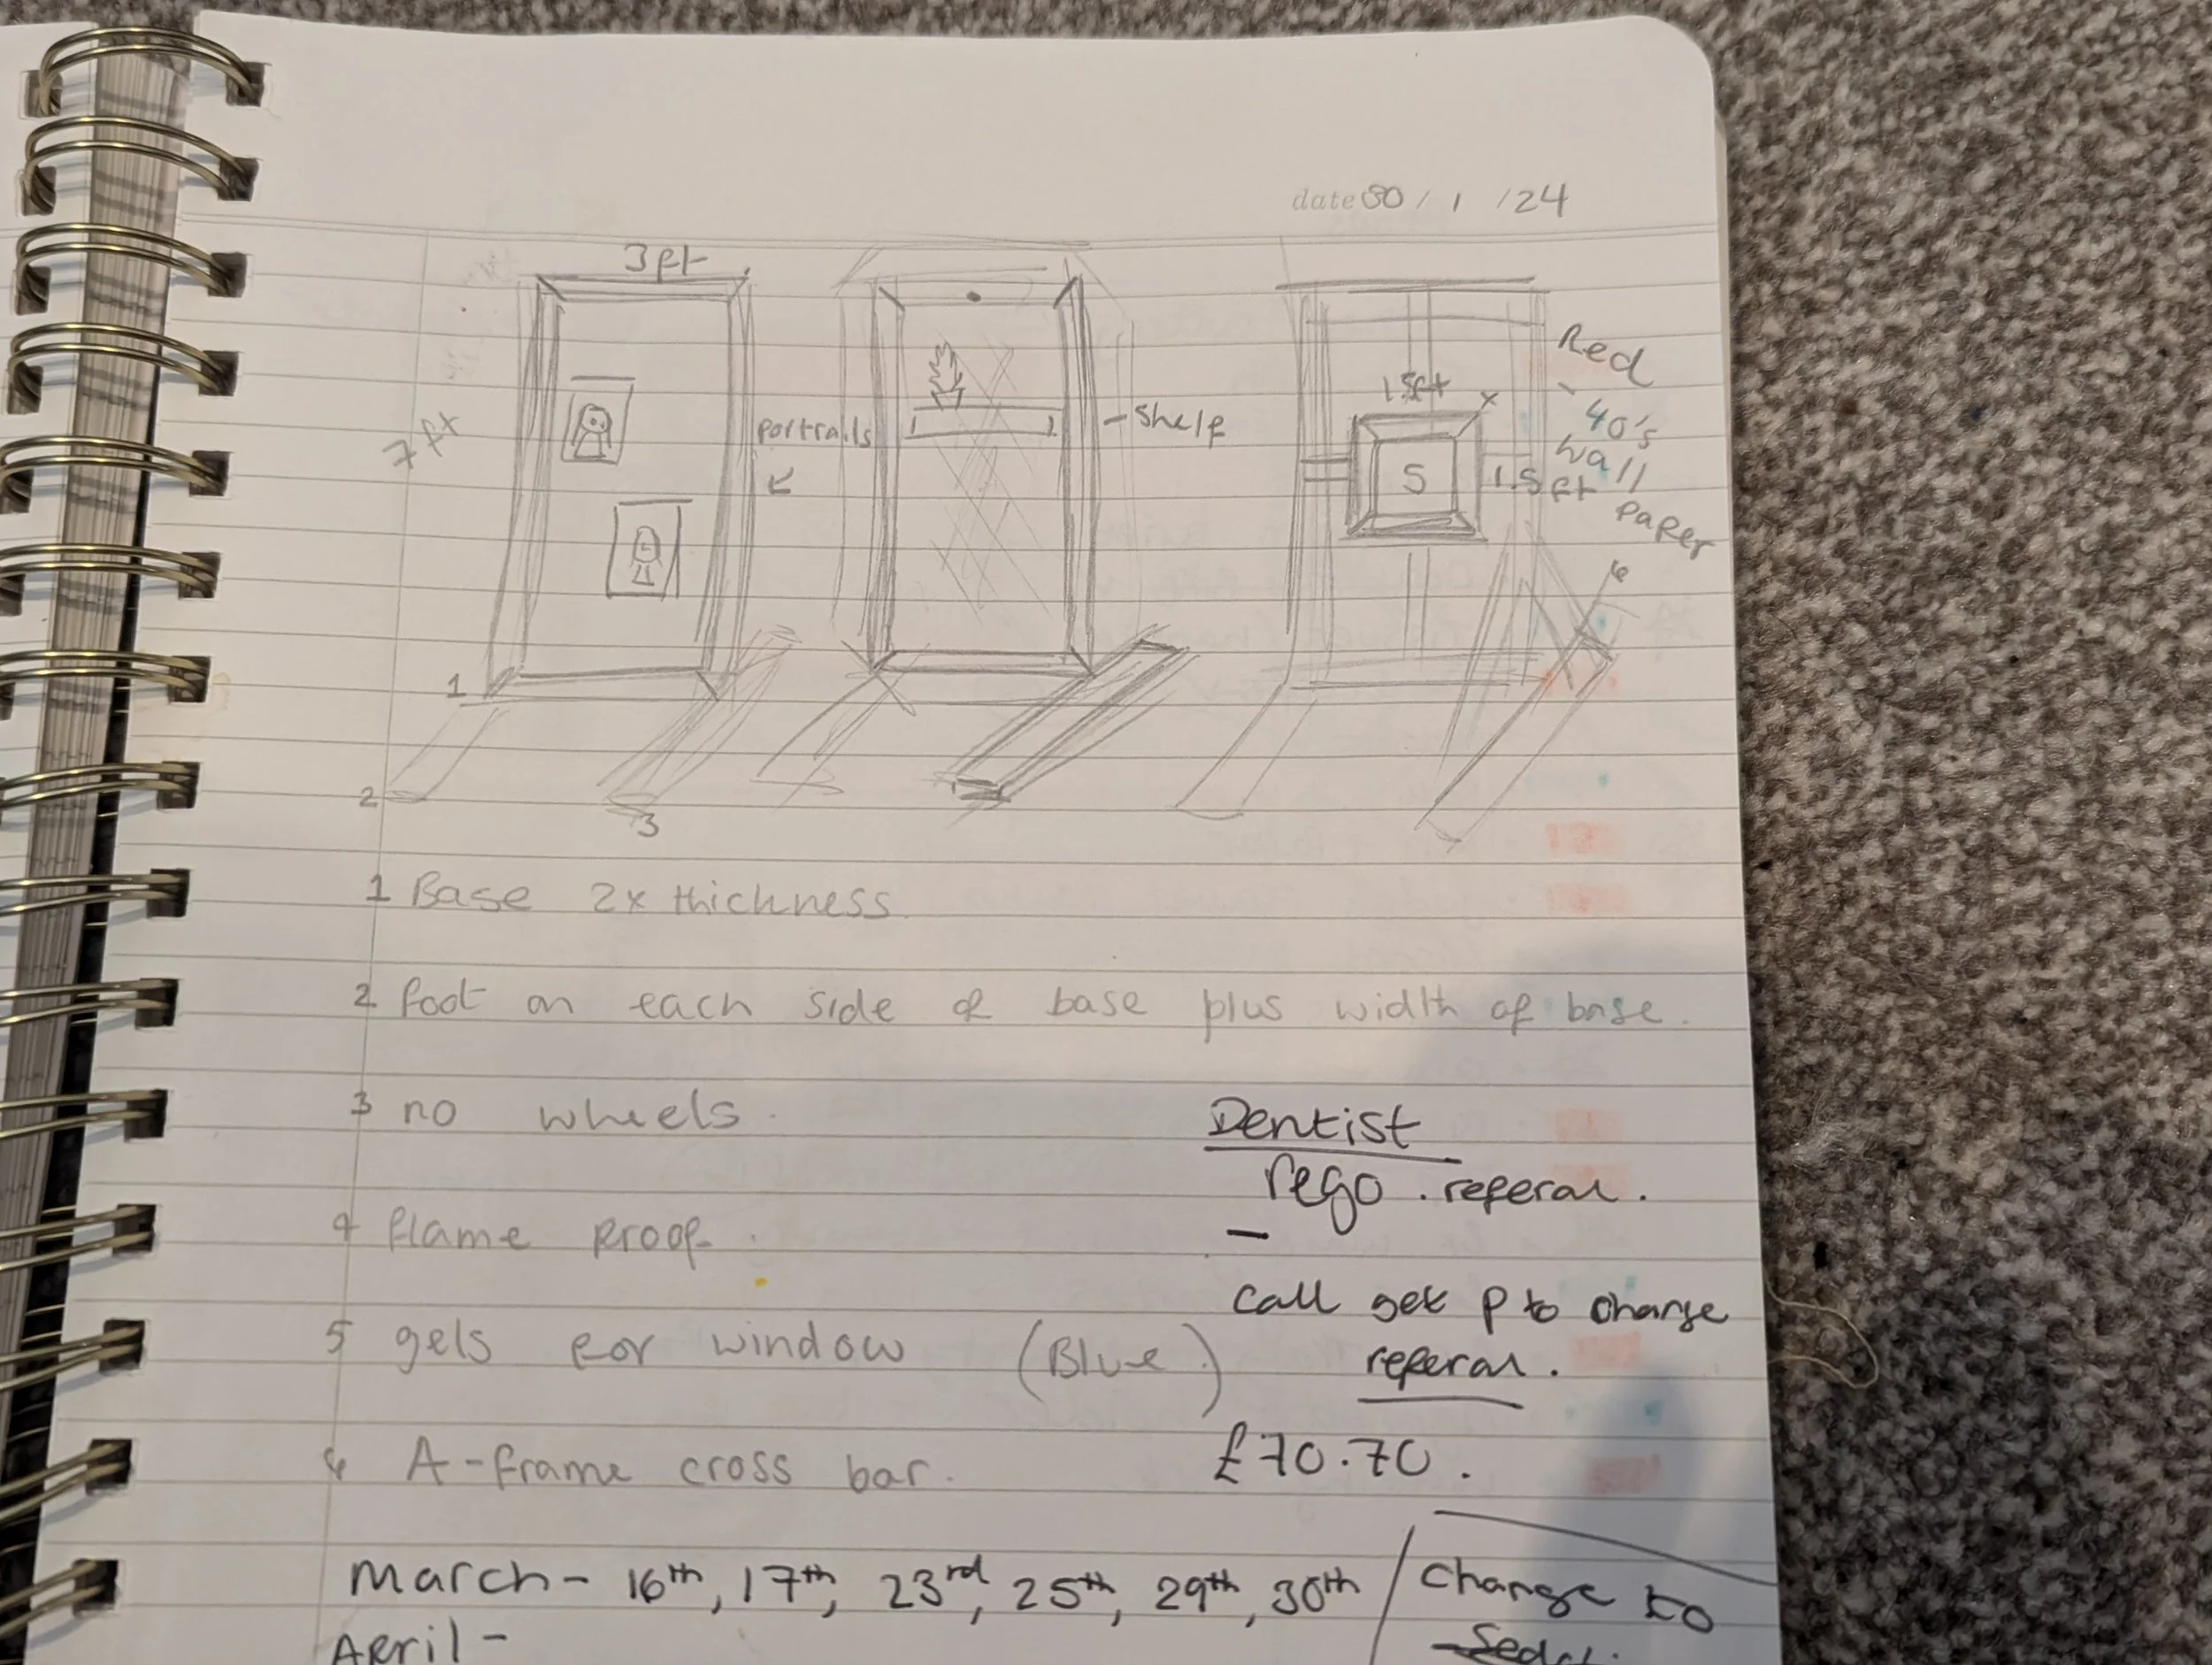 date 30 / 1 / 24
3ft
7 ft
portraits
- Shelf
Red
40's
wall
paper
1.5ft
x
S
1.5
ft
6
1
2
3
1 Base 2x thickness.
2 foot on each side of base plus width of base.
3 no wheels.
Dentist
rego . referal.
4 flame proof.
call get p to change
referal.
5 gels for window (Blue)
£70.70.
6 A-frame cross bar.
March- 16th, 17th, 23rd, 25th, 29th, 30th / Change to
April -